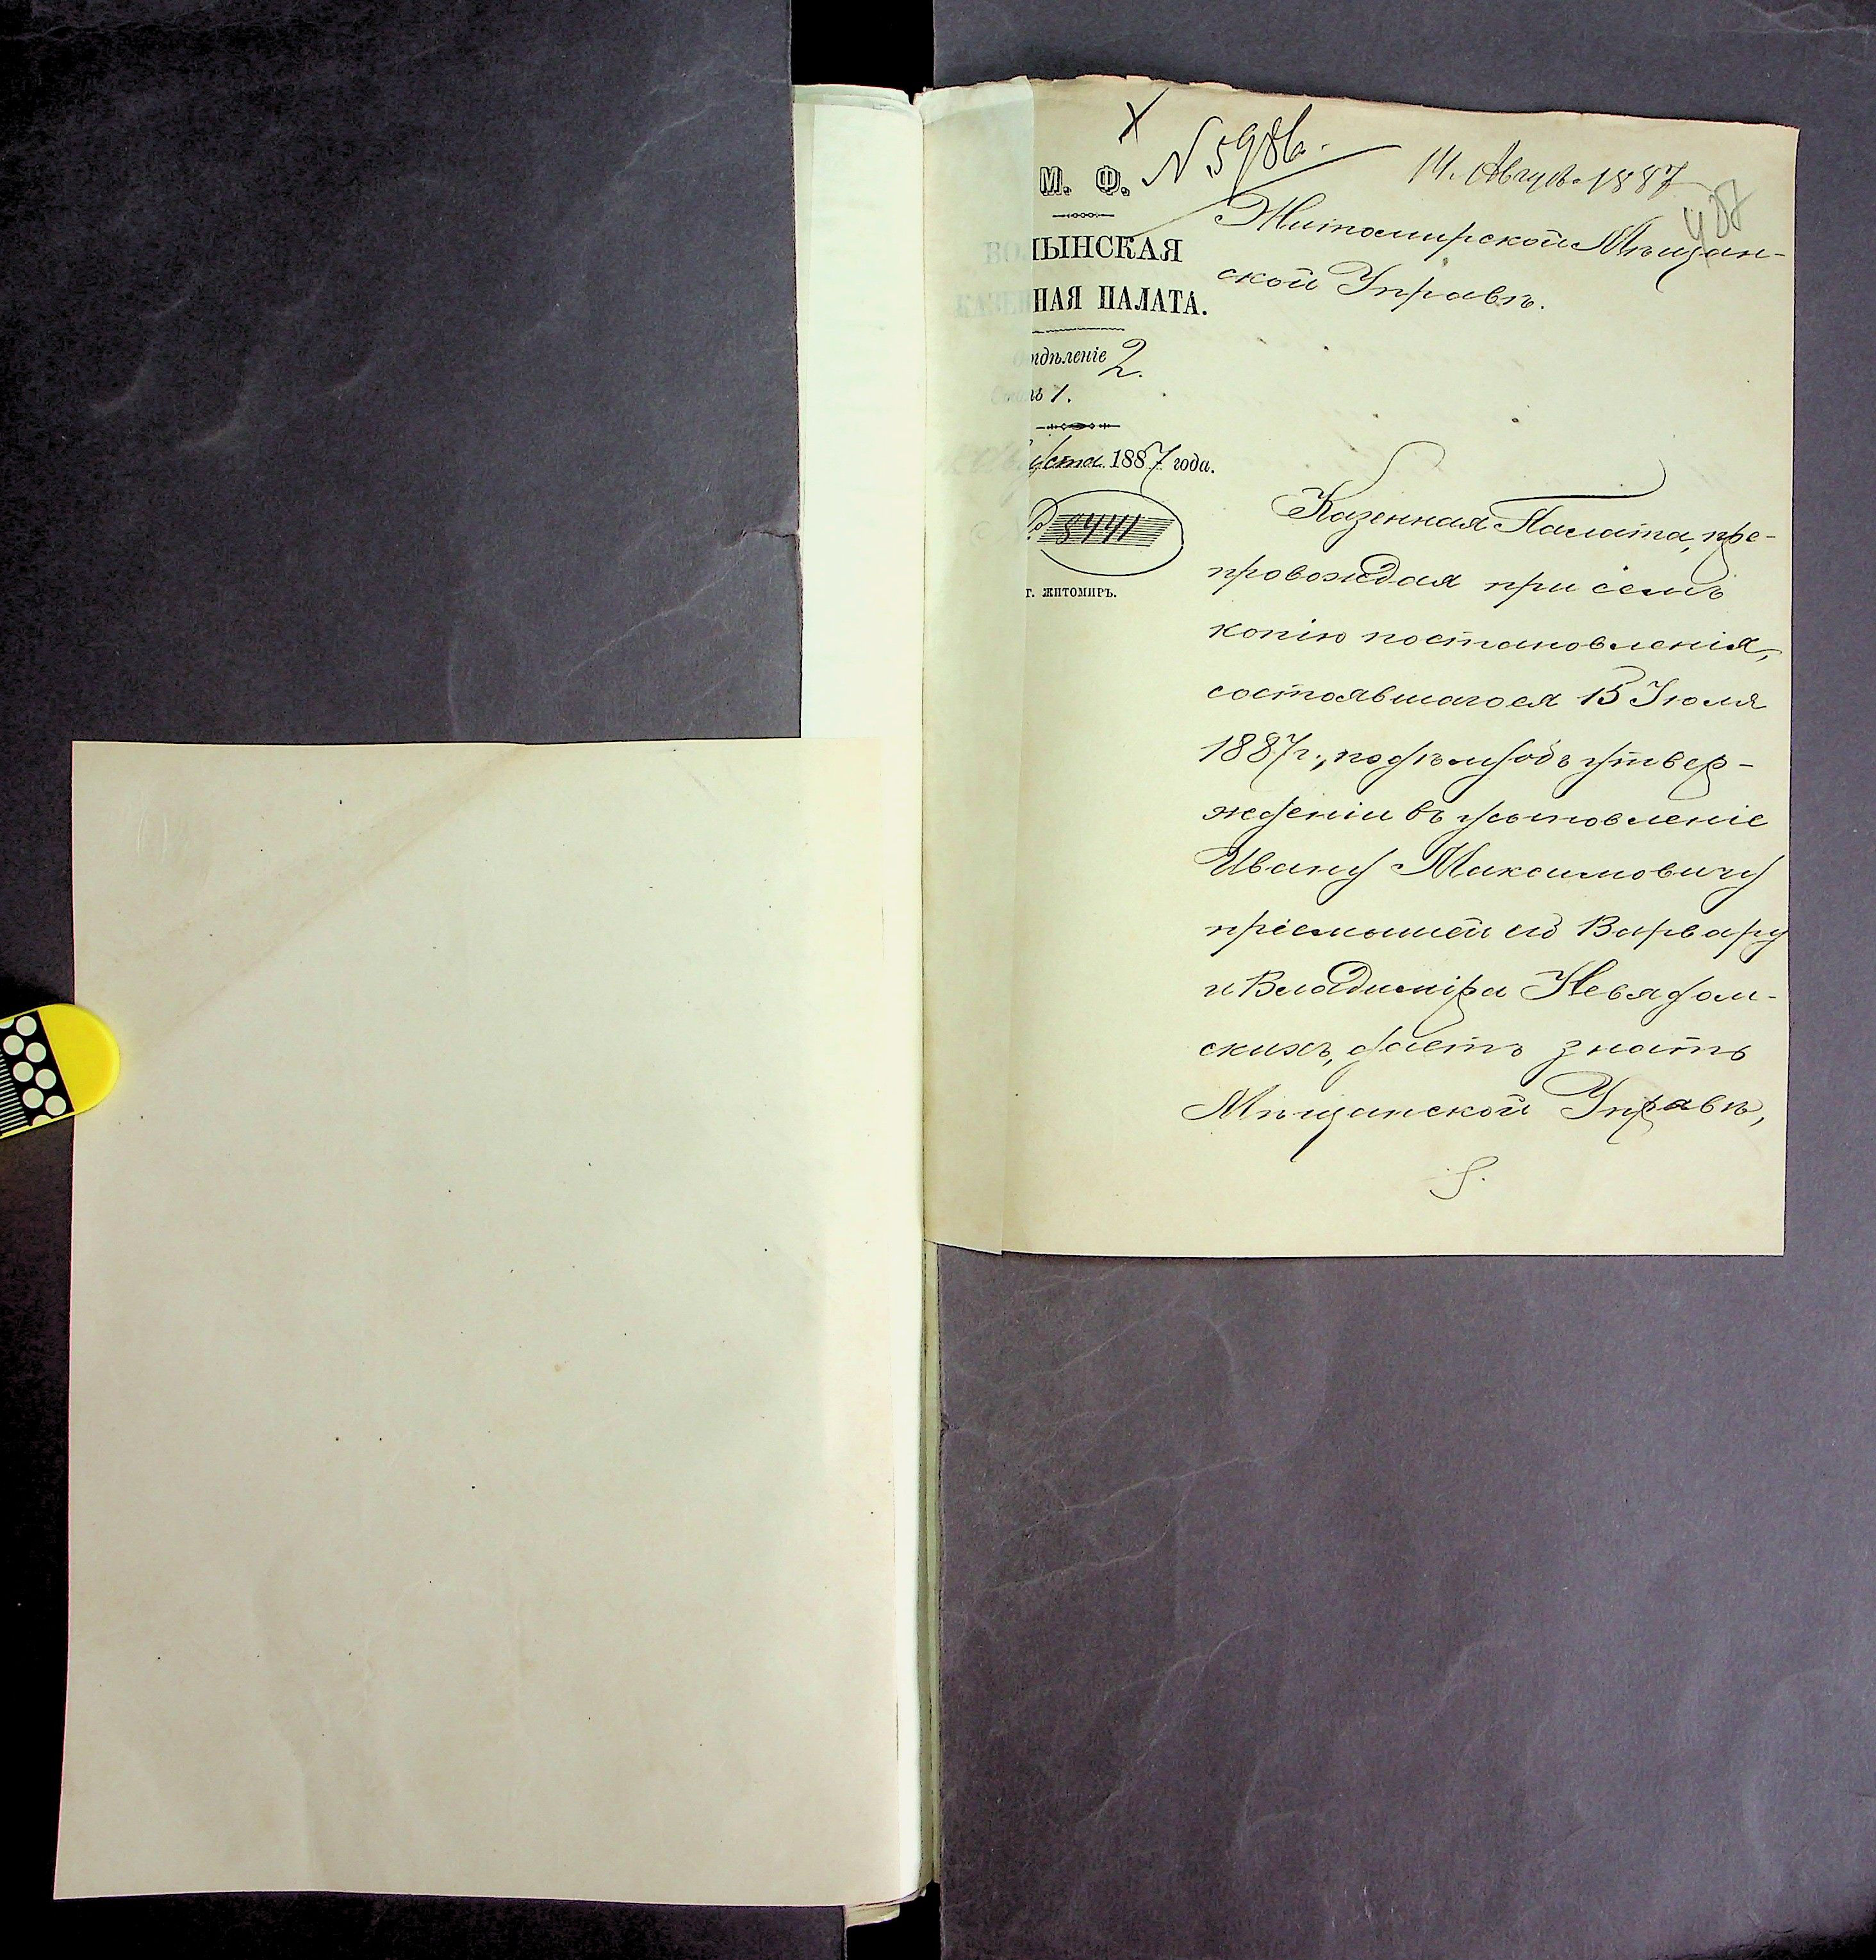 № 5986.
14. Август. 1887
487
М. Ф.
ВОЛЫНСКАЯ
КАЗЕННАЯ ПАЛАТА.
Отдѣленіе 2.
Столъ 1.
Августа 1887 года.
№ 8441
г. ЖИТОМИРЪ.
Житомирской Мѣщан-
ской Управѣ.
Казенная Палата, пре-
провождая при семъ
копію постановленія,
состоявшагося 15 Іюля
1887 г., по дѣлу объ утвер-
жденіи въ усыновленіе
Ивану Максимовичу
пріемышей его Варвару
и Владиміра Невядом-
скихъ, даетъ знать
Мѣщанской Управѣ,